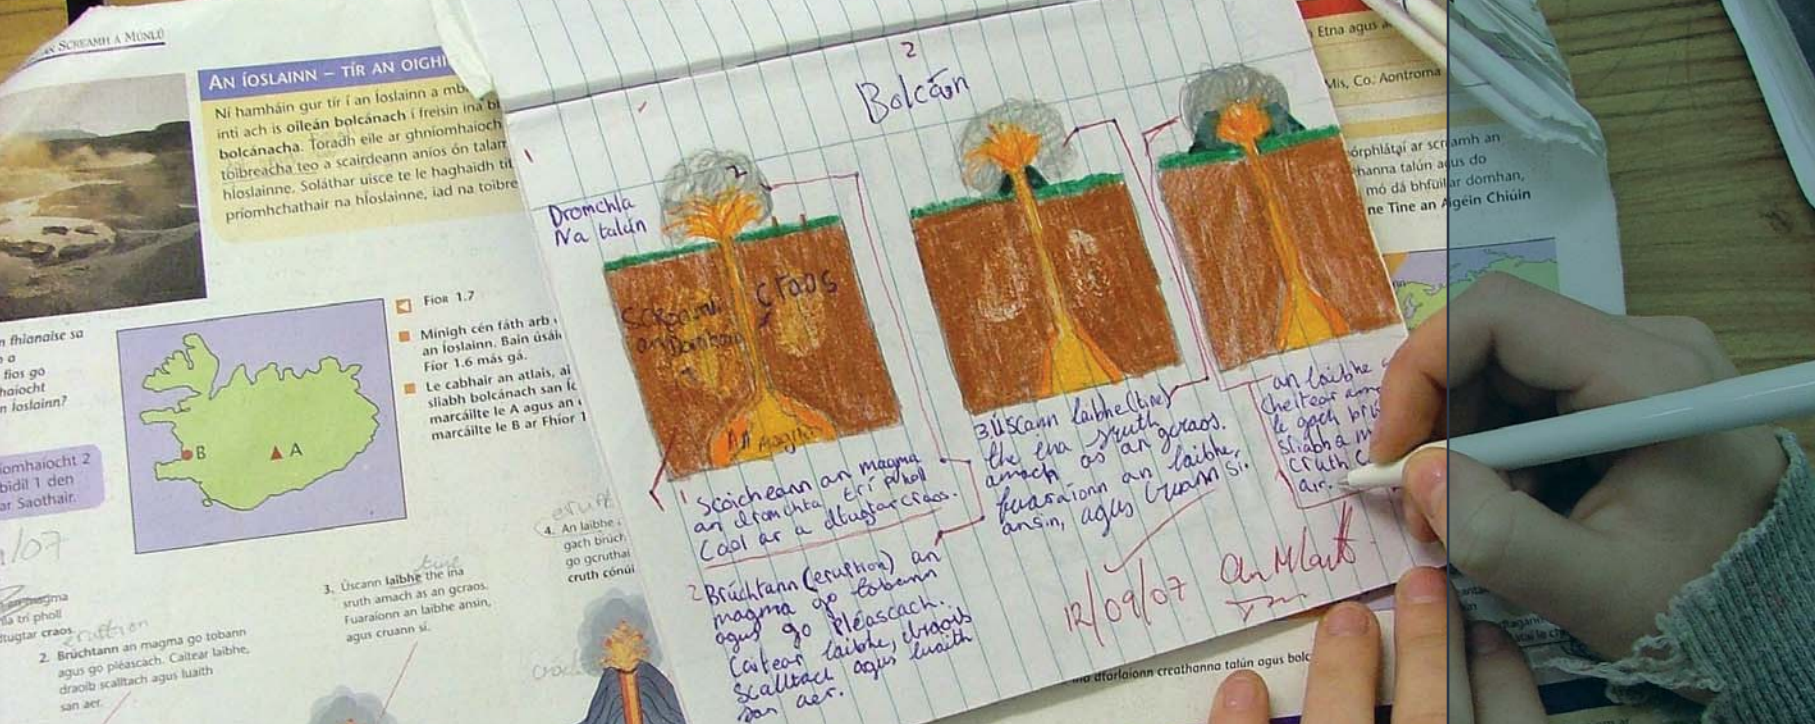 AN SCREAMH A MÚNLÚ
AN ÍOSLAINN – TÍR AN OIGHI
Ní hamháin gur tír í an Íoslainn a mb
inti ach is oileán bolcánach í freisin ina bl
bolcánacha. Toradh eile ar ghníomhaíoch
toibreacha teo a scairdeann aníos ón talam
hÍoslainne. Soláthar uisce te le haghaidh tit
príomhchathair na hÍoslainne, iad na toibre
Fíor 1.7
Mínigh cén fáth arb
an Íoslainn. Bain úsái
Fíor 1.6 más gá.
Le cabhair an atlais, ai
sliabh bolcánach san Íc
marcáilte le A agus an
marcáilte le B ar Fhíor 1
n fhianaise sa
o a
fios go
haíocht
n Íoslainn?
B
A
íomhaíocht 2
bidil 1 den
ar Saothair.
/07
magma
lla trí pholl
dtugtar craos.
eruption
2. Brúchtann an magma go tobann
agus go pléascach. Caitear laibhe,
draoib scalltach agus luaith
san aer.
tine
3. Úscann laibhe the ina
sruth amach as an gcraos.
Fuaraíonn an laibhe ansin,
agus cruann sí.
erupt
4. An laibhe
gach brúch
go gcruthaí
cruth cónúi
2
Bolcán
Dromchla
Na talún
2
Screamh
an Domhain
craos
An Magma
1 Scoicheann an magma
an dromchla trí pholl
caol ar a dtugtar craos.
2 Brúchtann (eruption) an
magma go tobann
agus go pléascach.
Caitear laibhe, draoib
scalltach agus luaith
san aer.
3. Úscann laibhe (tine)
the ina sruth
amach as an gcraos.
fuaraíonn an laibhe,
ansin, agus cruann sí.
an laibhe
le gach brú
sliabh a m
cruth c
air.
12/09/07
Etna agus a
Mis, Co. Aontroma
órphlátaí ar screamh an
hanna talún agus do
mó dá bhfuil ar domhan,
ne Tine an Aigéin Chiúin
dtarlaíonn creathanna talún agus bolc